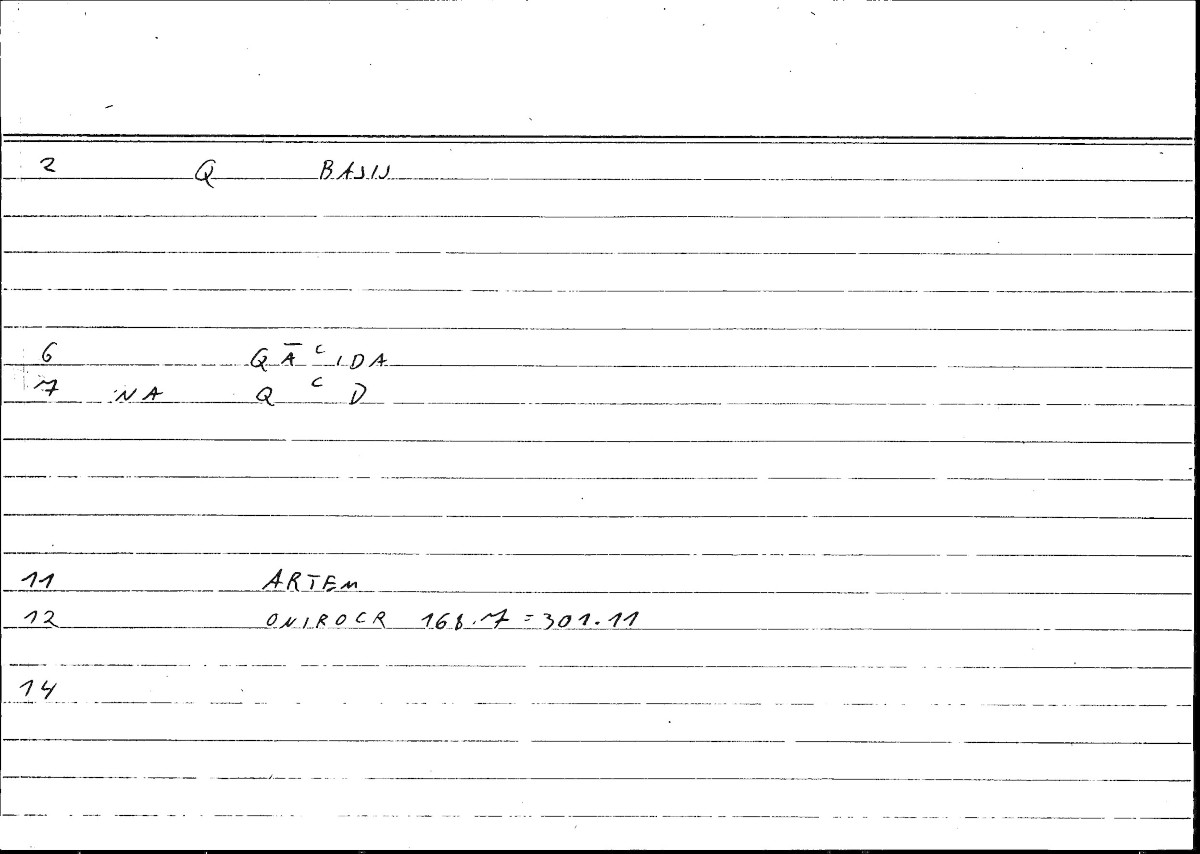 2 Q BASIS
6 QĀ ᶜIDA
7 NA Q ᶜ D
11 ARTEM
12 ONIROCR 168.7 = 301.11
14